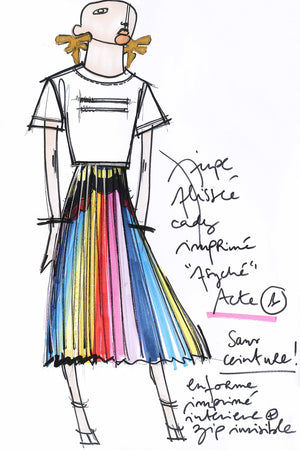 Jupe
plissée
cady
imprimé
"Psyché"
Acte 1
Sans
ceinture!
enforme
imprimé
interieure @
zip invisible